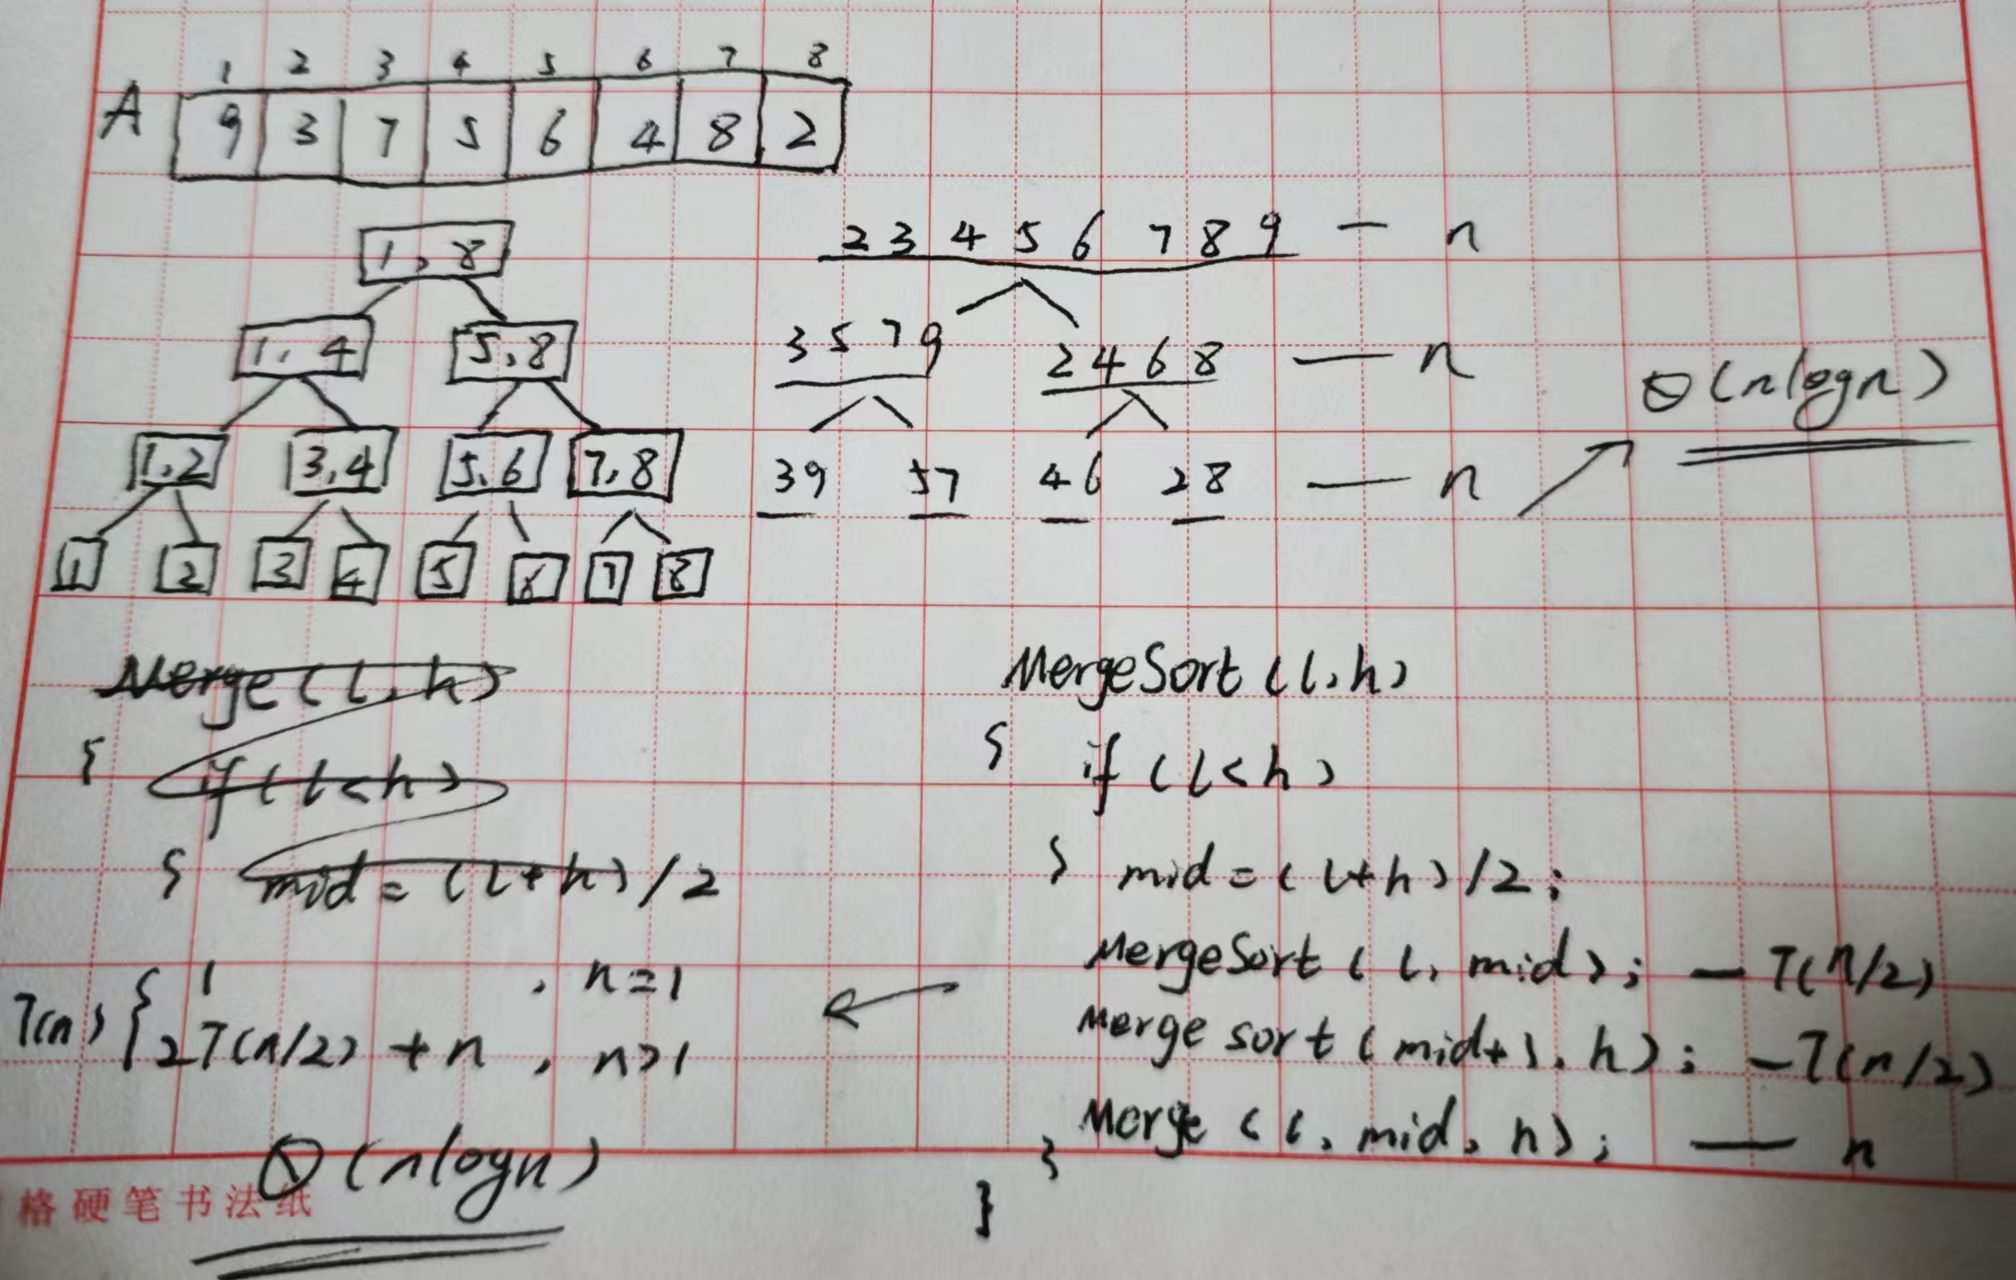 1 2 3 4 5 6 7 8
A 9 3 7 5 6 4 8 2
1,8
1,4 5,8
1,2 3,4 5,6 7,8
1 2 3 4 5 6 7 8
2 3 4 5 6 7 8 9 — n
3 5 7 9 2 4 6 8 — n
3 9 5 7 4 6 2 8 — n
Θ(nlogn)
Merge(l,h)
{ if(l<h)
{ mid=(l+h)/2
MergeSort(l,h)
{ if(l<h)
{ mid=(l+h)/2;
MergeSort(l,mid); — T(n/2)
Merge sort(mid+1,h); — T(n/2)
Merge(l,mid,h); — n
}
}
T(n) { 1 , n=1
2T(n/2)+n , n>1
Θ(nlogn)
格硬笔书法纸